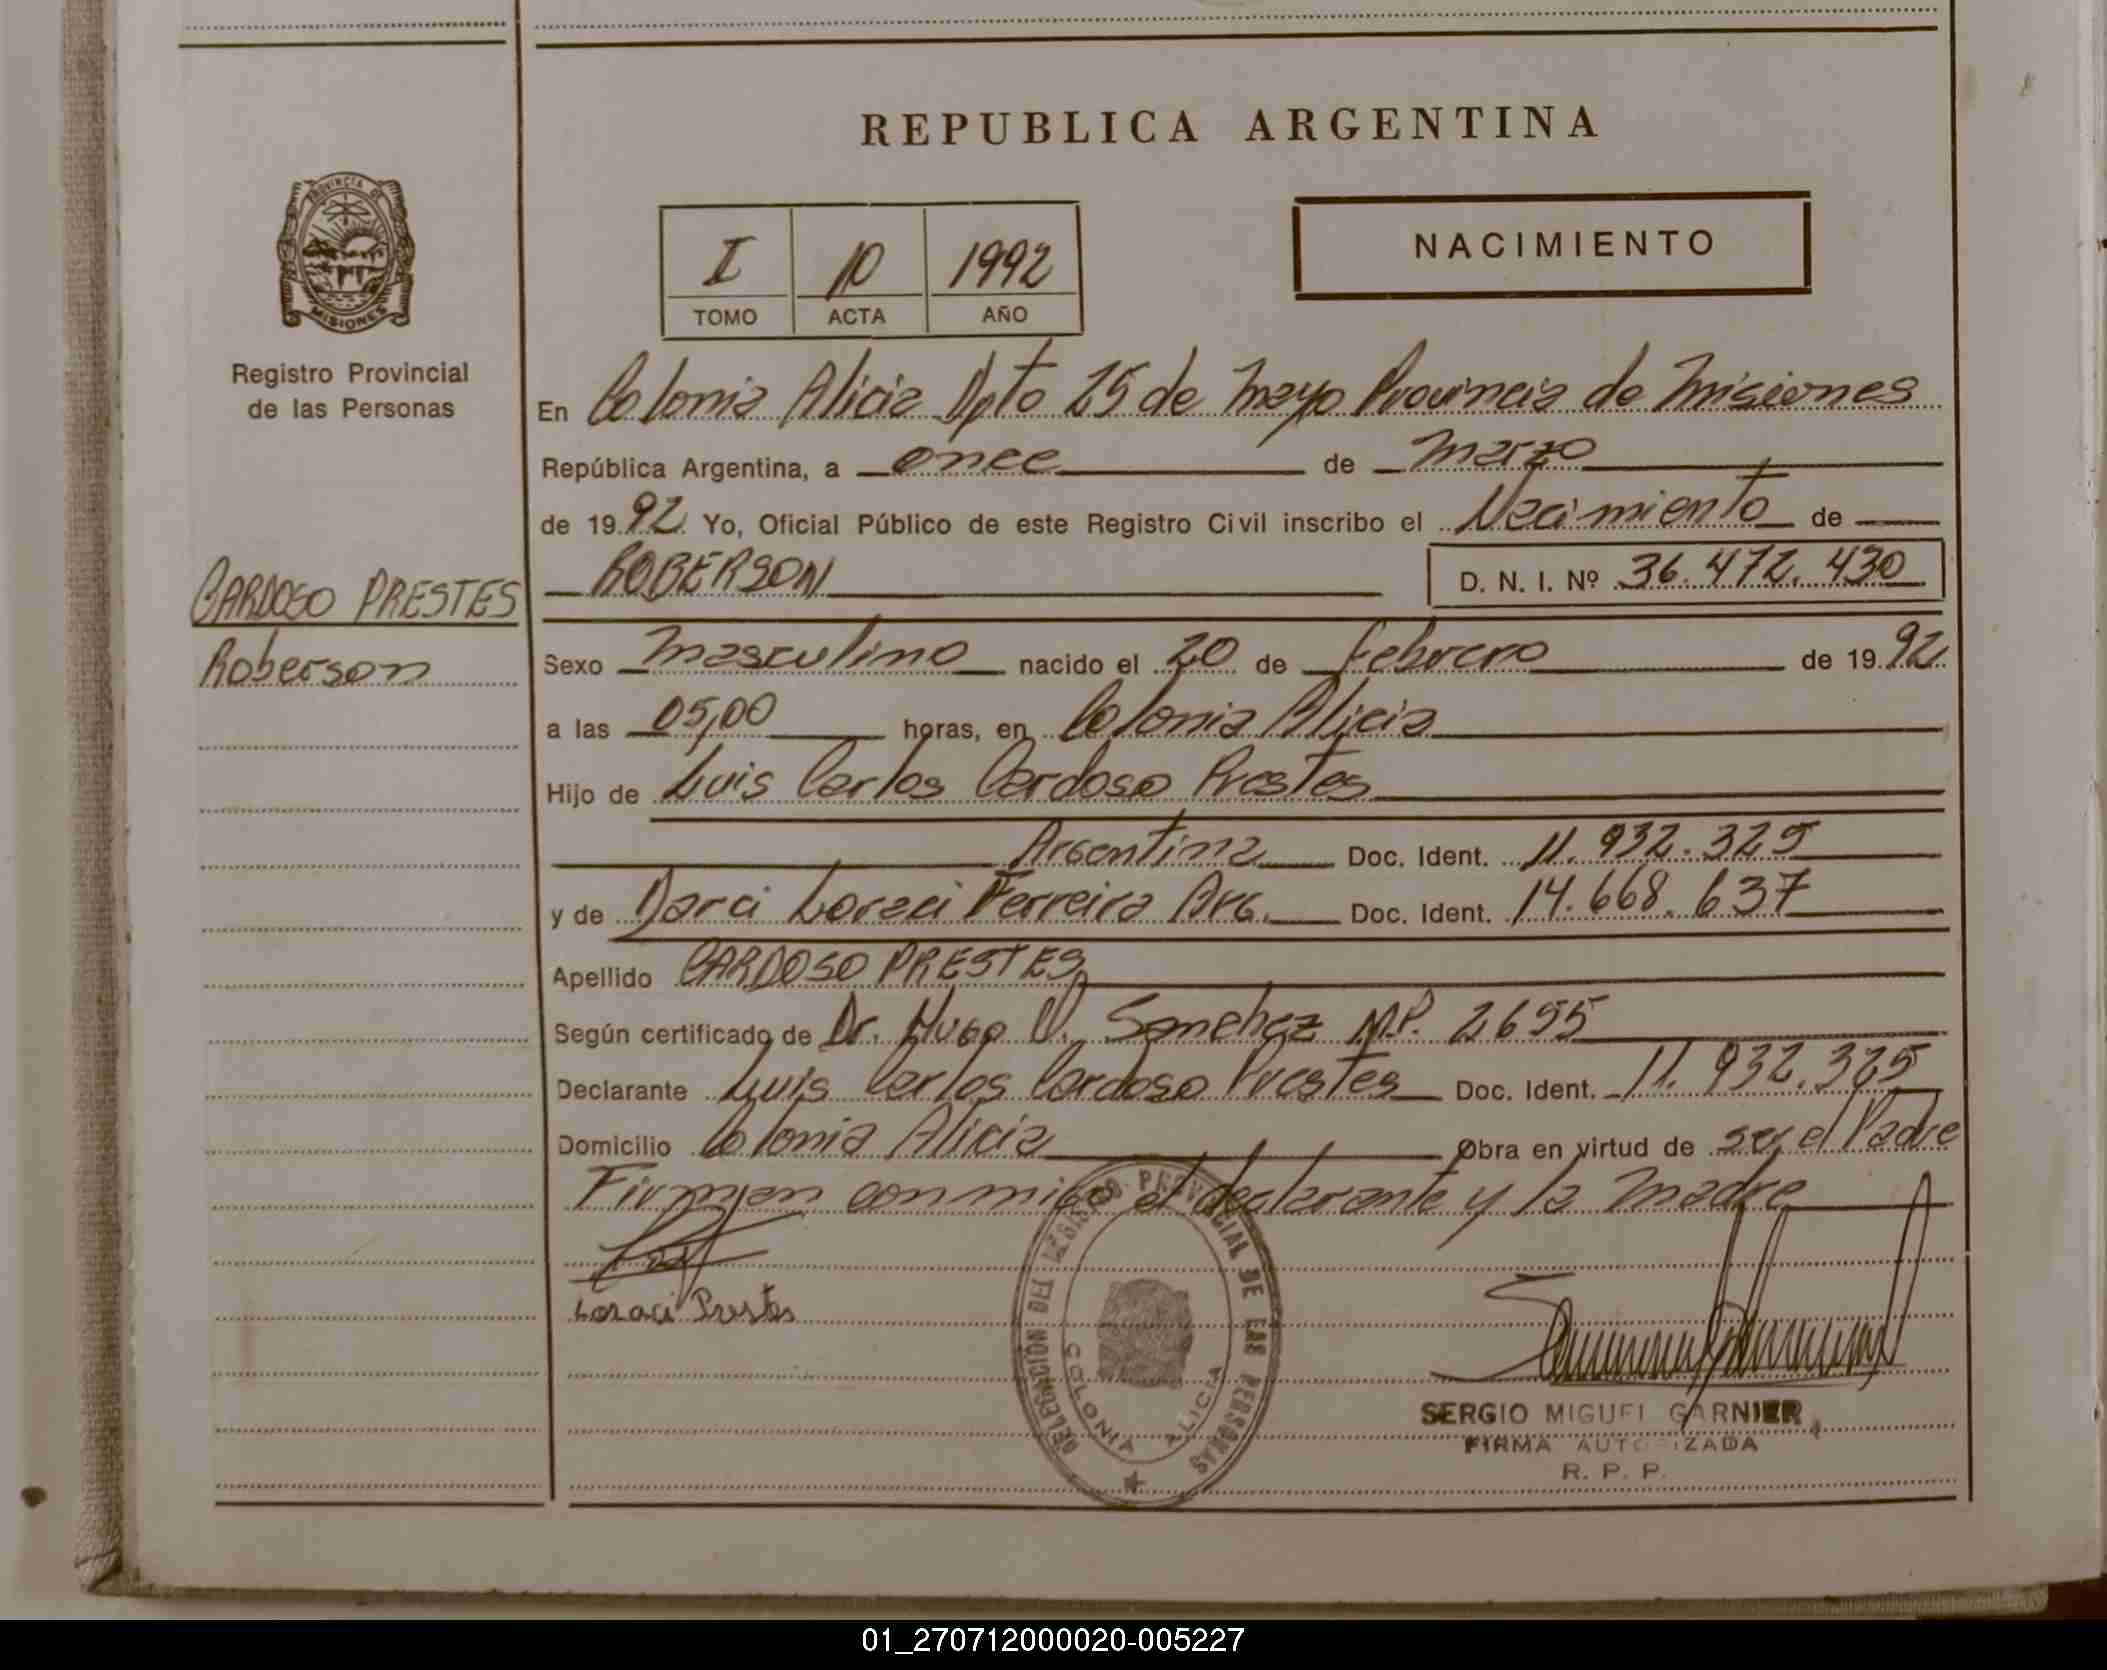 REPUBLICA ARGENTINA
PROVINCIA DE MISIONES
I 10 1992
TOMO ACTA AÑO
NACIMIENTO
Registro Provincial
de las Personas
CARDOSO PRESTES
Roberson
En Colonia Alicia Dpto 25 de Mayo Provincia de Misiones
República Argentina, a once de Marzo
de 1992 Yo, Oficial Público de este Registro Civil inscribo el Nacimiento de
ROBERSON D. N. I. Nº 36.472.430
Sexo Masculino nacido el 20 de Febrero de 1992
a las 05,00 horas, en Colonia Alicia
Hijo de Luis Carlos Cardoso Prestes
Argentina Doc. Ident. 11.932.325
y de Darci Loraci Ferreira Arg. Doc. Ident. 14.668.637
Apellido CARDOSO PRESTES
Según certificado de Dr. Hugo V. Sanchez M.P. 2655
Declarante Luis Carlos Cardoso Prestes Doc. Ident. 11.932.325
Domicilio Colonia Alicia Obra en virtud de ser el Padre
Firman conmigo el declarante y la Madre
Loraci Prestes
DELEGACION DEL REGISTRO PROVINCIAL DE LAS PERSONAS
COLONIA ALICIA
SERGIO MIGUEL GARNIER
FIRMA AUTORIZADA
R. P. P.
01_270712000020-005227